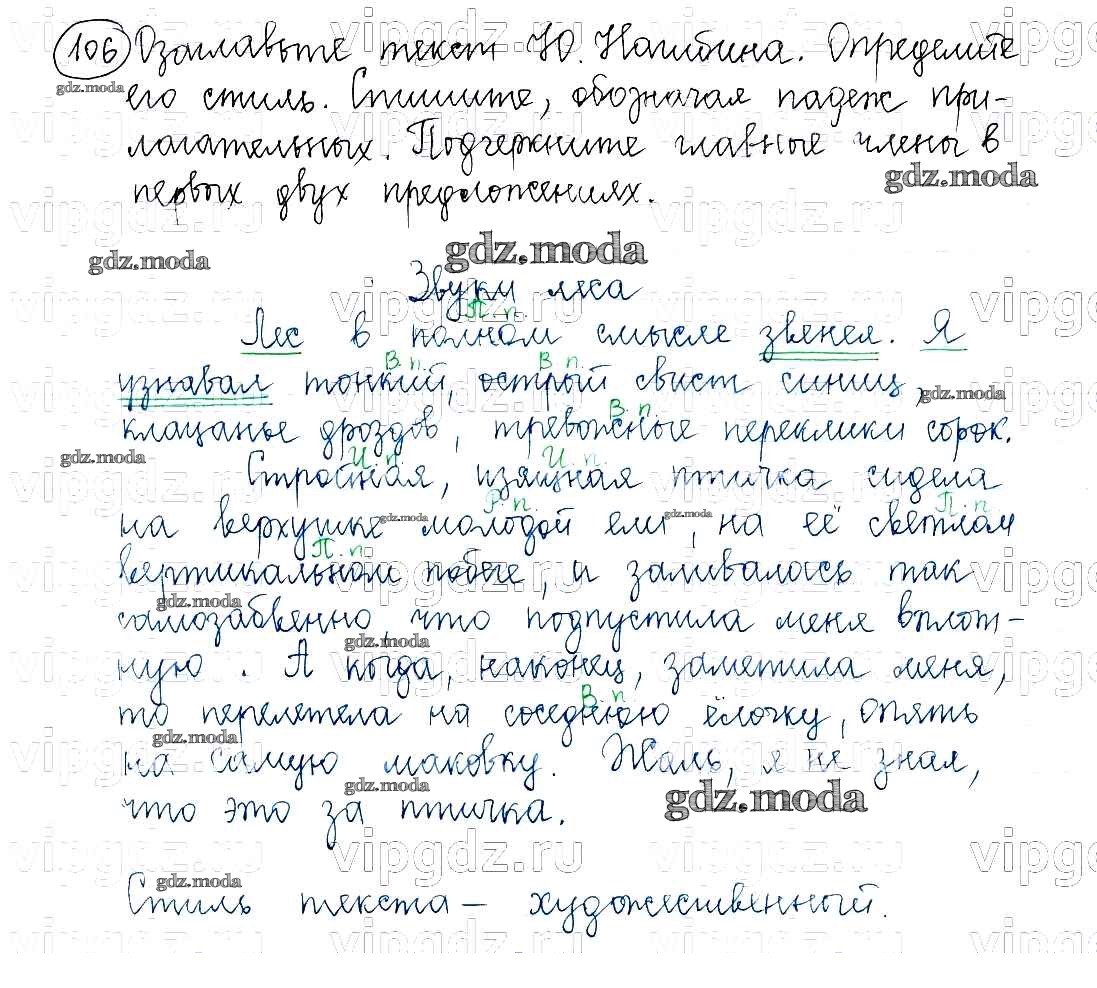 106 Озаглавьте текст Ю. Нагибина. Определите
его стиль. Спишите, обозначая падеж при-
лагательных. Подчеркните главные члены в
первых двух предложениях.
gdz.moda
Звуки леса
П. п.
Лес в полном смысле звенел. Я
В. п. В. п.
узнавал тонкий, острый свист синиц,
В. п.
клацанье дроздов, тревожные переклики сорок.
И. п. И. п.
Стройная, изящная птичка сидела
Р. п. П. п.
на верхушке молодой ели, на её светлом
П. п.
вертикальном побеге, и заливалась так
самозабвенно, что подпустила меня вплот-
ную. А когда, наконец, заметила меня,
В. п.
то перелетела на соседнюю ёлочку, опять
на самую маковку. Жаль, я не знал,
что это за птичка.
gdz.moda
Стиль текста – художественный.
vipgdz.ru